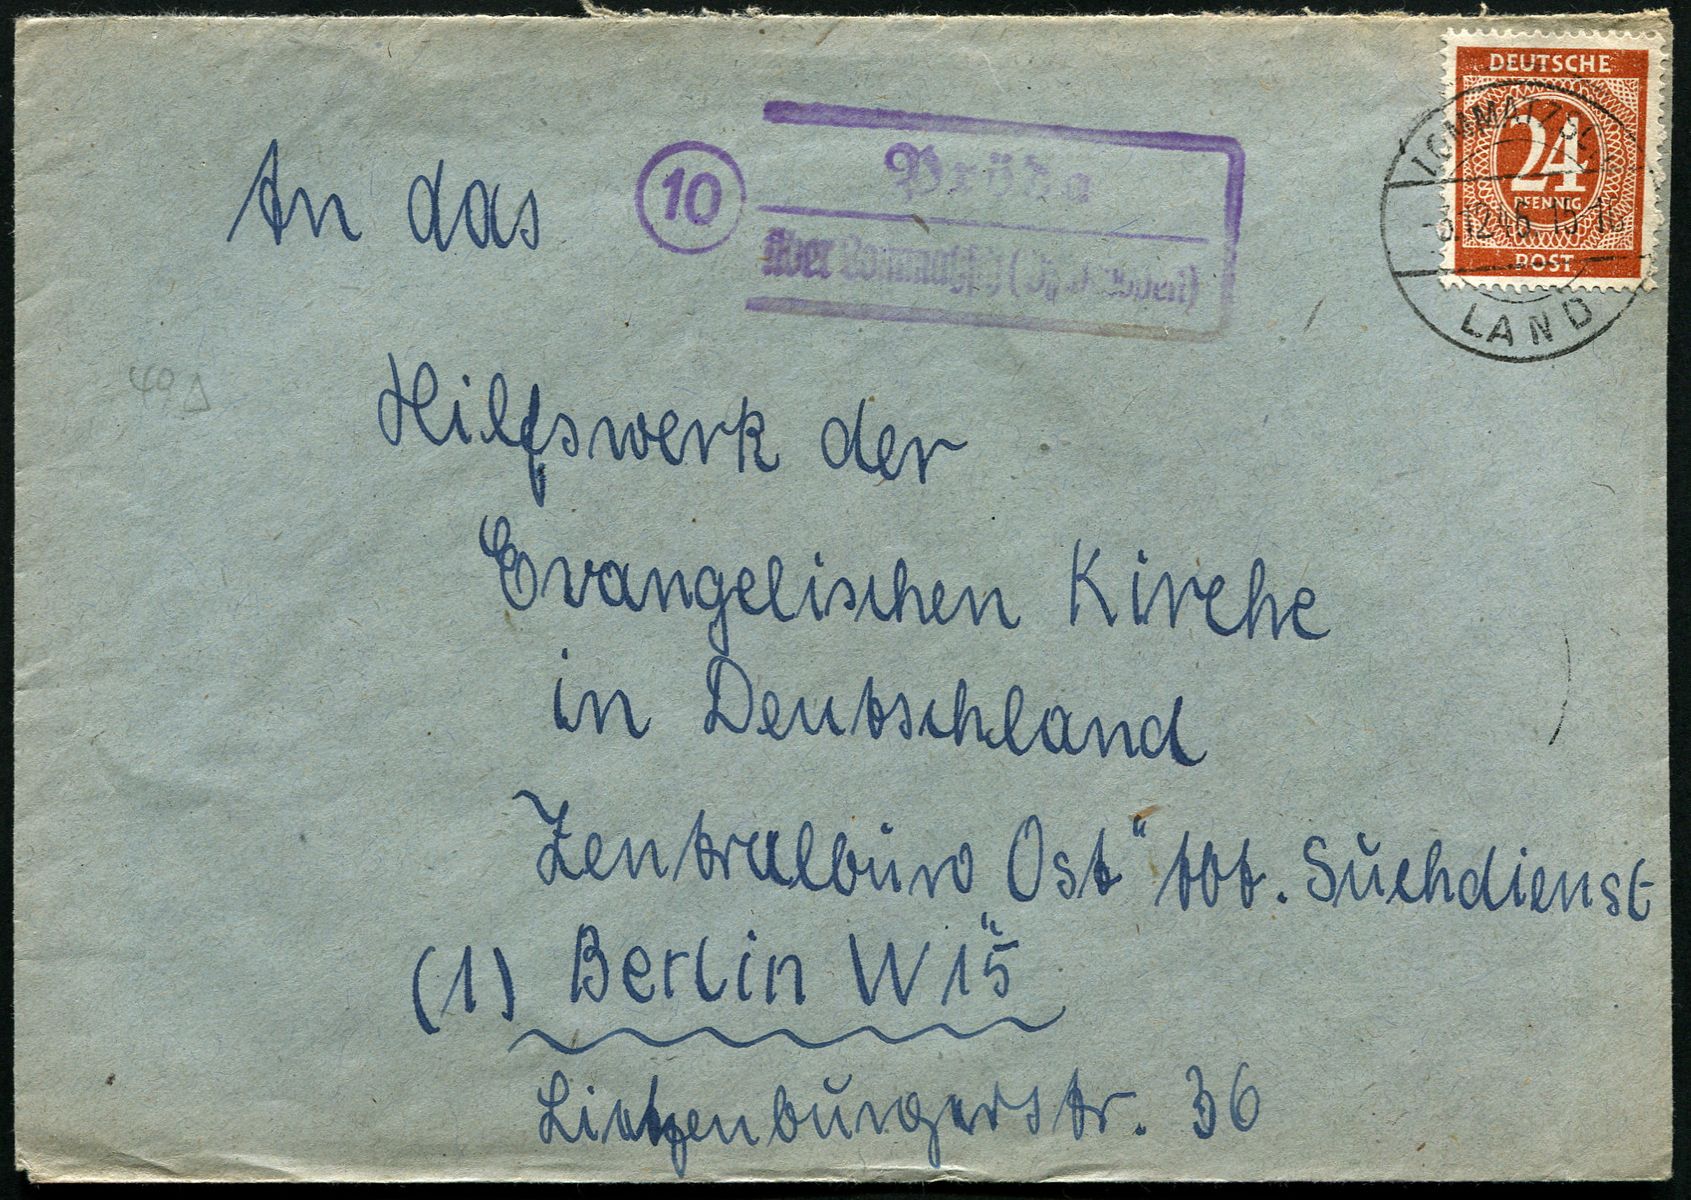 An das
10
Pröda
über Lommatzsch
DEUTSCHE
24
PFENNIG
POST
LOMMATZSCH
LAND
40
Hilfswerk der
Evangelischen Kirche
in Deutschland
Zentralbüro Ost" Abt. Suchdienst
(1) Berlin W 15
Lietzenburgerstr. 36